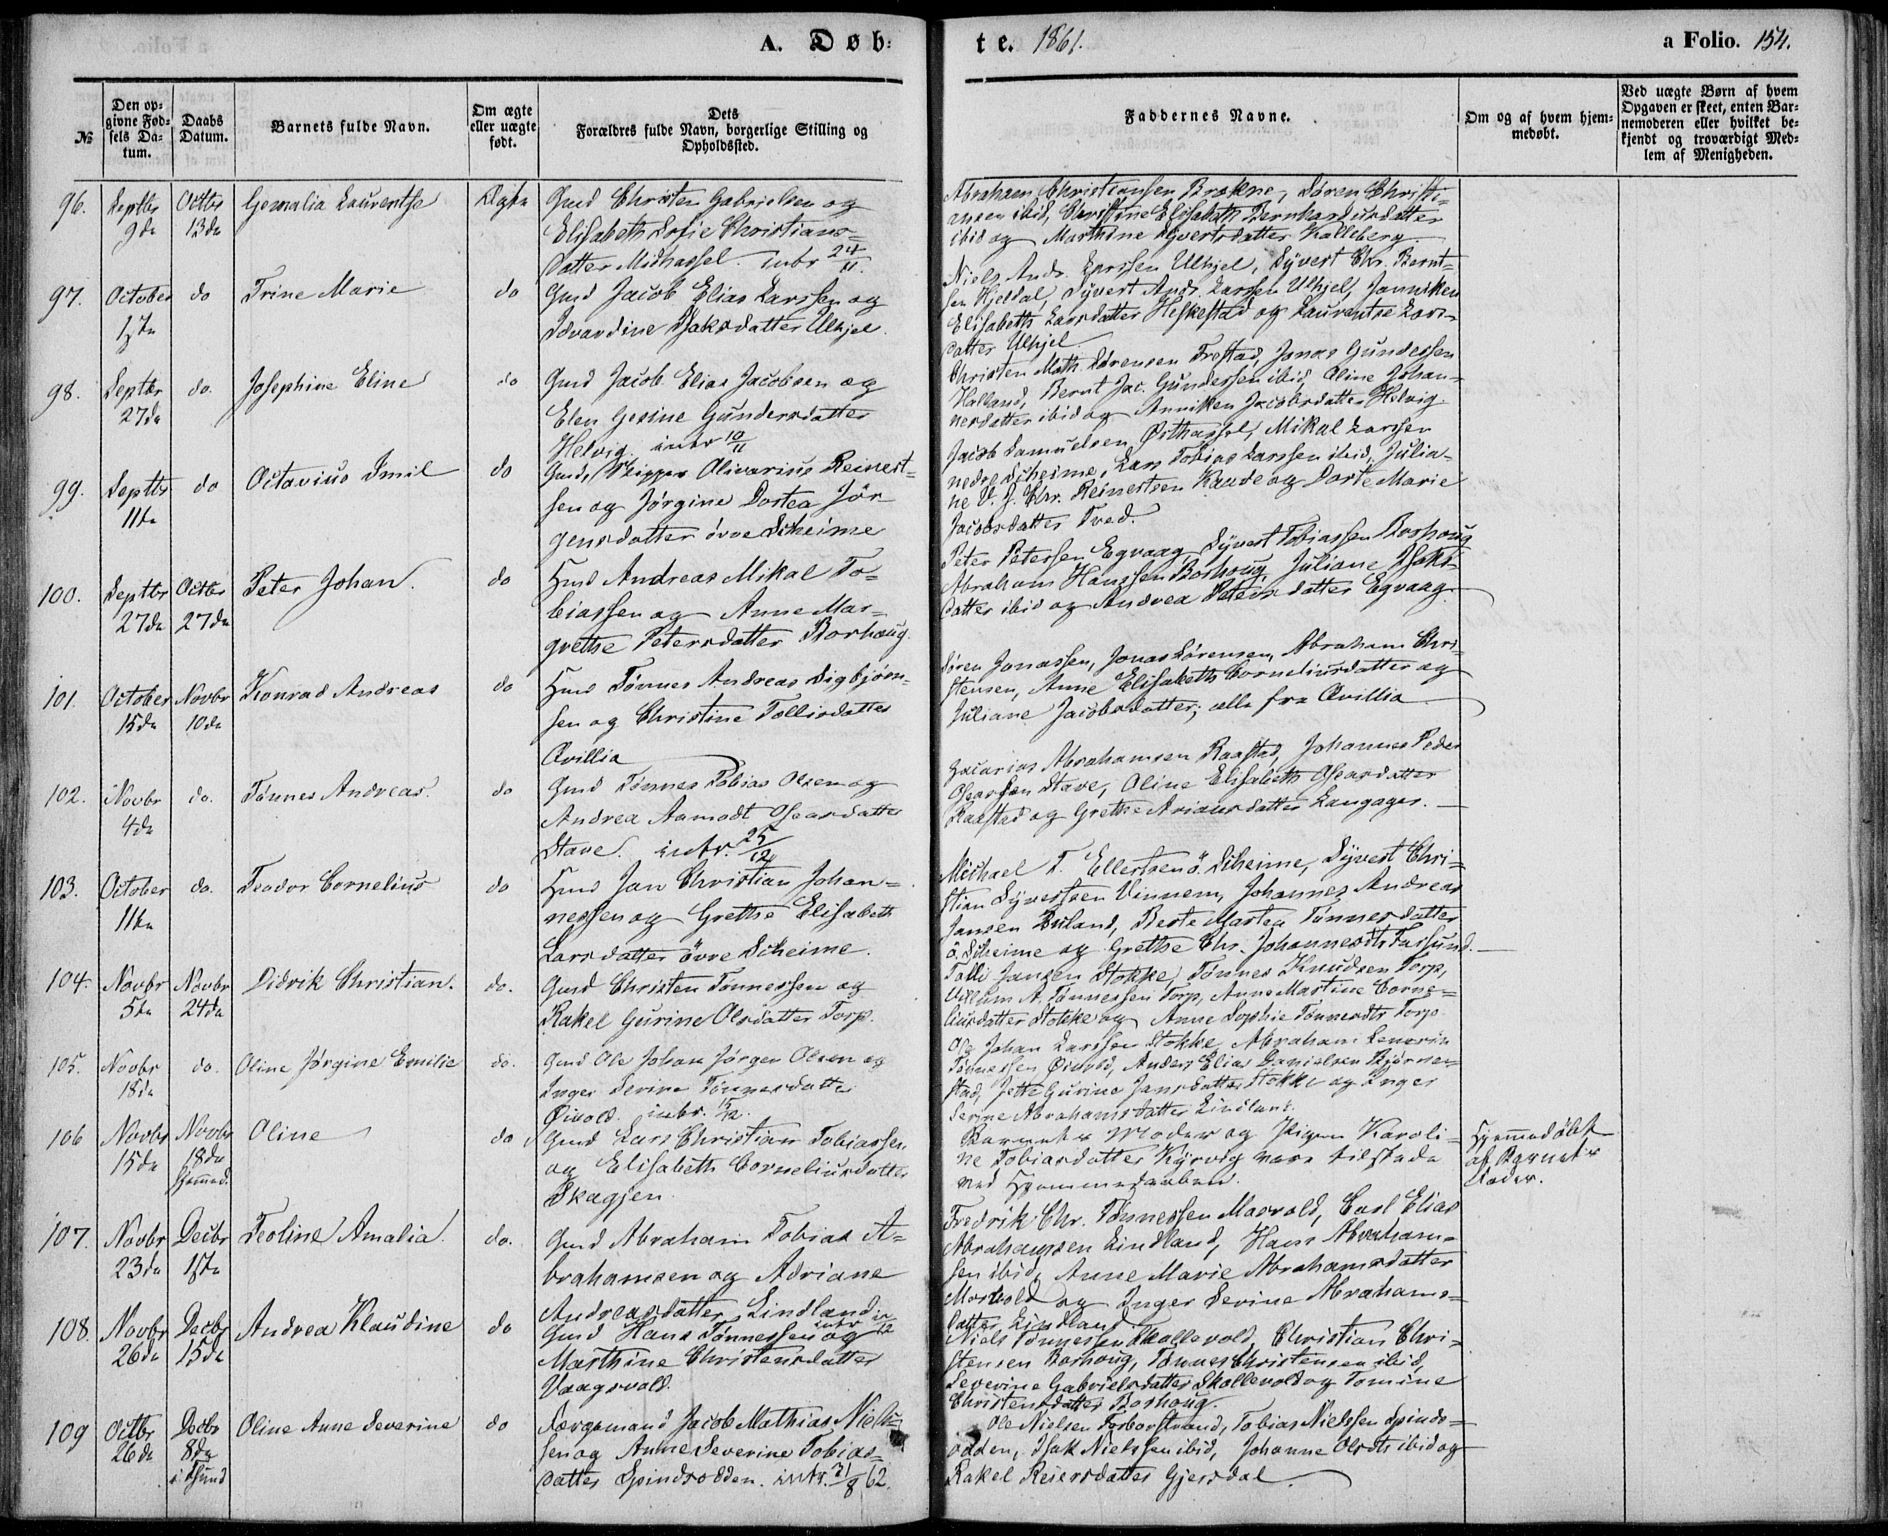 A. Døb:
te. 1861.
a Folio. 154.
№
Den op-
givne Fød-
sels Da-
tum.
Daabs
Datum.
Barnets fulde Navn.
Om ægte
eller uægte
født.
Dets
Forældres fulde Navn, borgerlige Stilling og
Opholdssted.
Faddernes Navne.
Om og af hvem hjem-
medøbt.
Ved uægte Børn af hvem
Opgaven er skeet, enten Bar-
nemoderen eller hvilket be-
kjendt og troværdigt Med-
lem af Menigheden.
96.
Septbr
9de
Octbr
13de
Gemalia Laurentse
Ægte
Gmd Christen Gabrielsen og
Elisabeth Sofie Christians-
datter Midhassel. intr 24/11.
Abraham Christiansen Brekne, Søren Christi-
ansen ibid, Christine Elisabeth Bernhardusdatter
ibid og Marthine Syvertsdatter Kalleberg.
97.
October
17de
do
Trine Marie
do
Gmd Jacob Elias Larssen og
Edvardine Isaksdatter Ulhjel.
Niels Ands. Larssen Ulhjel, Syvert Chr. Bernt-
sen Hjeldal, Syvert Ands. Larssen Ulhjel, Janniken
Elisabeth Larsdatter Heskestad og Laurentse Lars-
datter Ulhjel.
98.
Septbr
27de
do.
Josephine Eline
do
Gmd Jacob Elias Jacobsen og
Elen Gesine Gundersdatter
Helvig. intr 10/11
Christen Math. Sørensen Frestad, Jonas Gundessen
Halland, Bernt Jac. Gundessen ibid, Oline Johan-
nesdatter ibid og Anniken Jacobsdatter Helvig.
99.
Septbr
11te
do
Octavius Emil
do
Gmd, Skipper Olivarius Reinert-
sen og Jørgine Dortea Jør-
gensdatter övre Skeime
Jacob Samuelsen Østhassel, Mikal Larssen
nedre Skeime, Lars Tobias Larssen ibid, Julia-
ne V. J. Chr. Reinertsen Kaade og Dorte Marie
Jacobsdatter Tved.
100.
Septbr
27de
Octbr
27de
Peter Johan.
do
Hmd Andreas Mikal To-
biassen og Anne Mar-
grethe Petersdatter Borhaug.
Peter Petersen Egvaag, Syvert Tobiassen Borhoug
Abraham Hanssen Borhoug, Juliane Isaks-
datter ibid og Andrea Petersdatter Egvaag.
101.
October
15de
Novbr
10de
Konrad Andreas
do
Hmd Tønnes Andreas Sigbjørn-
sen og Christine Tollisdatter
Qvillia
Søren Jonassen, Jonas Sørensen, Abraham Chri-
stensen, Anne Elisabeth Corneliusdatter og
Juliane Jacobsdatter, alle fra Qvillia
102.
Novbr
4de
do.
Tønnes Andreas.
do
Gmd Tønnes Tobias Olsen og
Andrea Aamodt Osearsdatter
Stave. intr. 25/12
Zacarias Abrahamsen Raastad, Johannes Peder
Osearsen Stave, Oline Elisabeth Osearsdatter
Raastad og Grethe Ariansdatter Langager.
103.
October
11te
do.
Teodor Cornelius
do
Hmd Jan Christian Johan-
nessen og Grethe Elisabeth
Larsdatter övre Skeime.
Michael T. Ellertsen ö. Skeime, Syvert Chri-
stian Syvertsen Vinnem, Johannes Andreas
Jansen Buland, Berte Martea Tønnesdatter
ö. Skeime og Grethe Chr. Johannesdtr Farsund.
104.
Novbr
5te
Novbr
24de
Didrik Christian.
do.
Gmd Christen Tønnessen og
Rakel Gurine Olsdatter Torp.
Tolli Jansen Stokke, Tønnes Knudsen Torp,
Villum A. Tønnessen Torp, Anne Martine Corne-
liusdatter Stokke og Anne Sophie Tønnesdtr Torp.
105.
Novbr
18de
do.
Oline Jørgine Emilie
do.
Gmd Ole Johan Jørgen Olsen og
Inger Serine Tønnesdatter
Øivold. intr.
Ole Johan Larssen Stokke, Abraham Severin
Tønnessen Øivold, Anders Elias Danielsen Bjørne-
stad, Jette Gurine Jansdatter Stokke og Inger
Serine Abrahamsdatter Lindland.
106
Novbr
15de
Novbr
18de
hjemmed.
Oline
do
Gmd Lars Christian Tobiassen
og Elisabeth Corneliusdatter
Skagjen
Barnets Moder og Pigen Karoli-
ne Tobiasdatter Kjørvig vare tilstede
ved Hjemmedaaben.
Hjemmedøbt
af Barnets
Fader.
107.
Novbr
23de
Decbr
15de
Teoline Amalia.
do.
Gmd Abraham Tobias A-
brahamsen og Adriane
Andreasdatter Lindland
Fredrik Chr. Tønnessen Mosvold, Carl Elias
Abrahamsen Lindland, Hans Abraham-
sen ibid, Anne Marie Abrahamsdatter
Mosvold og Inger Serine Abrahams-
datter Lindland.
108.
Novbr
26de
Decbr
15de
Andrea Klaudine
do
Gmd Hans Tønnessen og
Marthine Christensdatter
Vaagsvold.
Niels Tønnessen Skollevold, Christian Chri-
stensen Borhoug, Tønnes Christensen ibid,
Severine Gabrielsdatter Skollevold og Tomine
Christensdatter Borhoug.
109
Octbr
26de
Decbr
8de
i Fsund
Oline Anne Severine
do
Færgemand Jacob Mathias Niel-
sen og Anne Severine Tobias-
datter Spindsodden. intr. 31/8 62.
Ole Nielsen Farborstrand, Tobias Nielsen Spinds-
odden, Isak Nielsen ibid, Johanne Olsdtr ibid og
Rakel Reiersdatter Gjersdal.